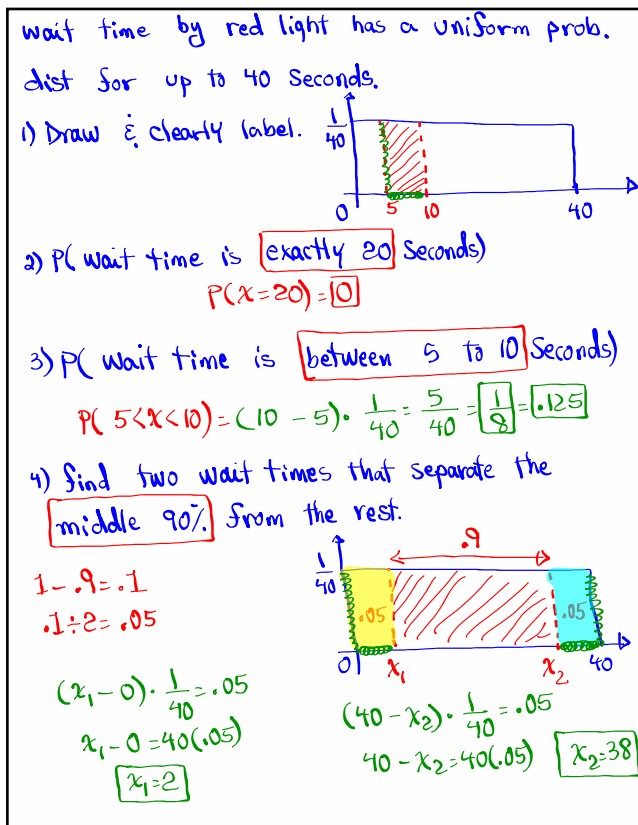 wait time by red light has a uniform prob.
dist for up to 40 seconds.
1) Draw & clearly label.
1/40
0 5 10 40
2) P( wait time is exactly 20 seconds)
P(x=20)=0
3) P( wait time is between 5 to 10 seconds)
P( 5<x<10)=(10-5)·1/40=5/40=1/8=.125
4) find two wait times that separate the
middle 90% from the rest.
.9
1/40
1-.9=.1
.1÷2=.05
.05 .05
0 x₁ x₂ 40
(x₁-0)·1/40=.05
x₁-0=40(.05)
x₁=2
(40-x₂)·1/40=.05
40-x₂=40(.05) x₂=38